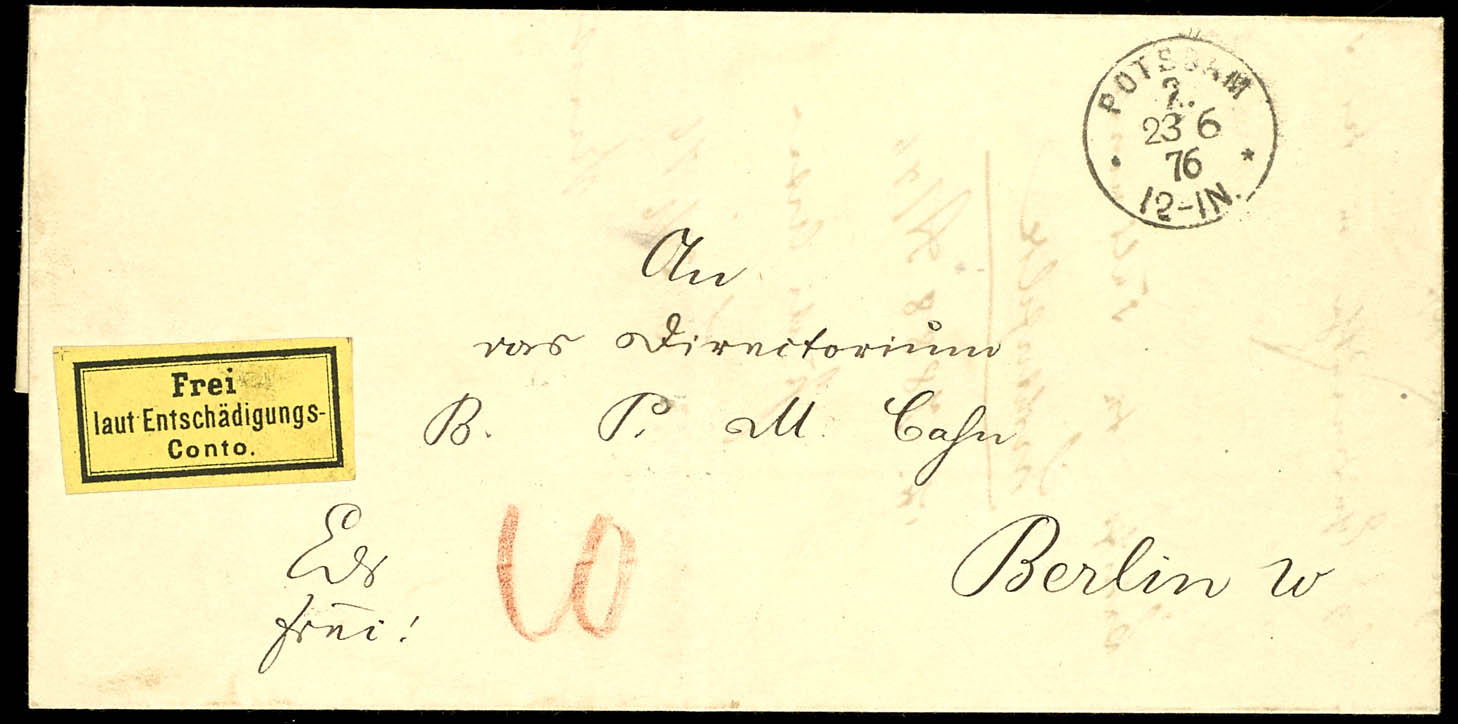 POTSDAM
2.
23 6
76
12-1N.
An
das Directorium
B. P. M. Bahn
Berlin W
Frei
laut Entschädigungs-
Conto.
frei!
10